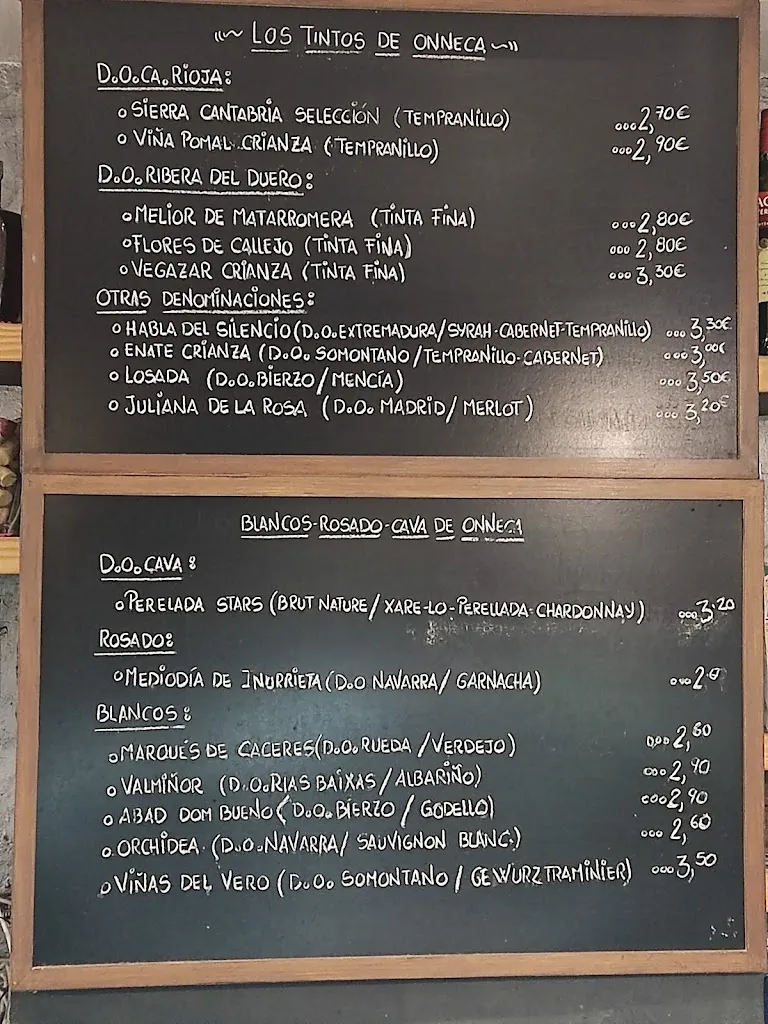 LOS TINTOS DE ONNECA
D.O.CA.RIOJA:
SIERRA CANTABRIA SELECCIÓN (TEMPRANILLO) ...2,70€
VIÑA POMAL CRIANZA (TEMPRANILLO) ...2,90€
D.O.RIBERA DEL DUERO:
MELIOR DE MATARROMERA (TINTA FINA) ...2,80€
FLORES DE CALLEJO (TINTA FINA) ...2,80€
VEGAZAR CRIANZA (TINTA FINA) ...3,30€
OTRAS DENOMINACIONES:
HABLA DEL SILENCIO (D.O.EXTREMADURA/SYRAH-CABERNET-TEMPRANILLO) ...3,30€
ENATE CRIANZA (D.O. SOMONTANO/TEMPRANILLO-CABERNET) ...3,00€
LOSADA (D.O.BIERZO/MENCÍA) ...3,50€
JULIANA DE LA ROSA (D.O. MADRID/MERLOT) ...3,20€
BLANCOS-ROSADO-CAVA DE ONNECA
D.O.CAVA:
PERELADA STARS (BRUT NATURE/XARE-LO-PERELLADA-CHARDONNAY) ...3,20
ROSADO:
MEDIODÍA DE INURRIETA (D.O NAVARRA/ GARNACHA)
BLANCOS:
MARQUÉS DE CACERES (D.O.RUEDA /VERDEJO) ...2,60
VALMIÑOR (D.O.RIAS BAIXAS/ALBARIÑO) ...2,90
ABAD DOM BUENO (D.O.BIERZO / GODELLO) ...2,90
ORCHIDEA (D.O.NAVARRA/ SAUVIGNON BLANC) ...2,60
VIÑAS DEL VERO (D.O. SOMONTANO / GEWURZTRAMINIER) ...3,50